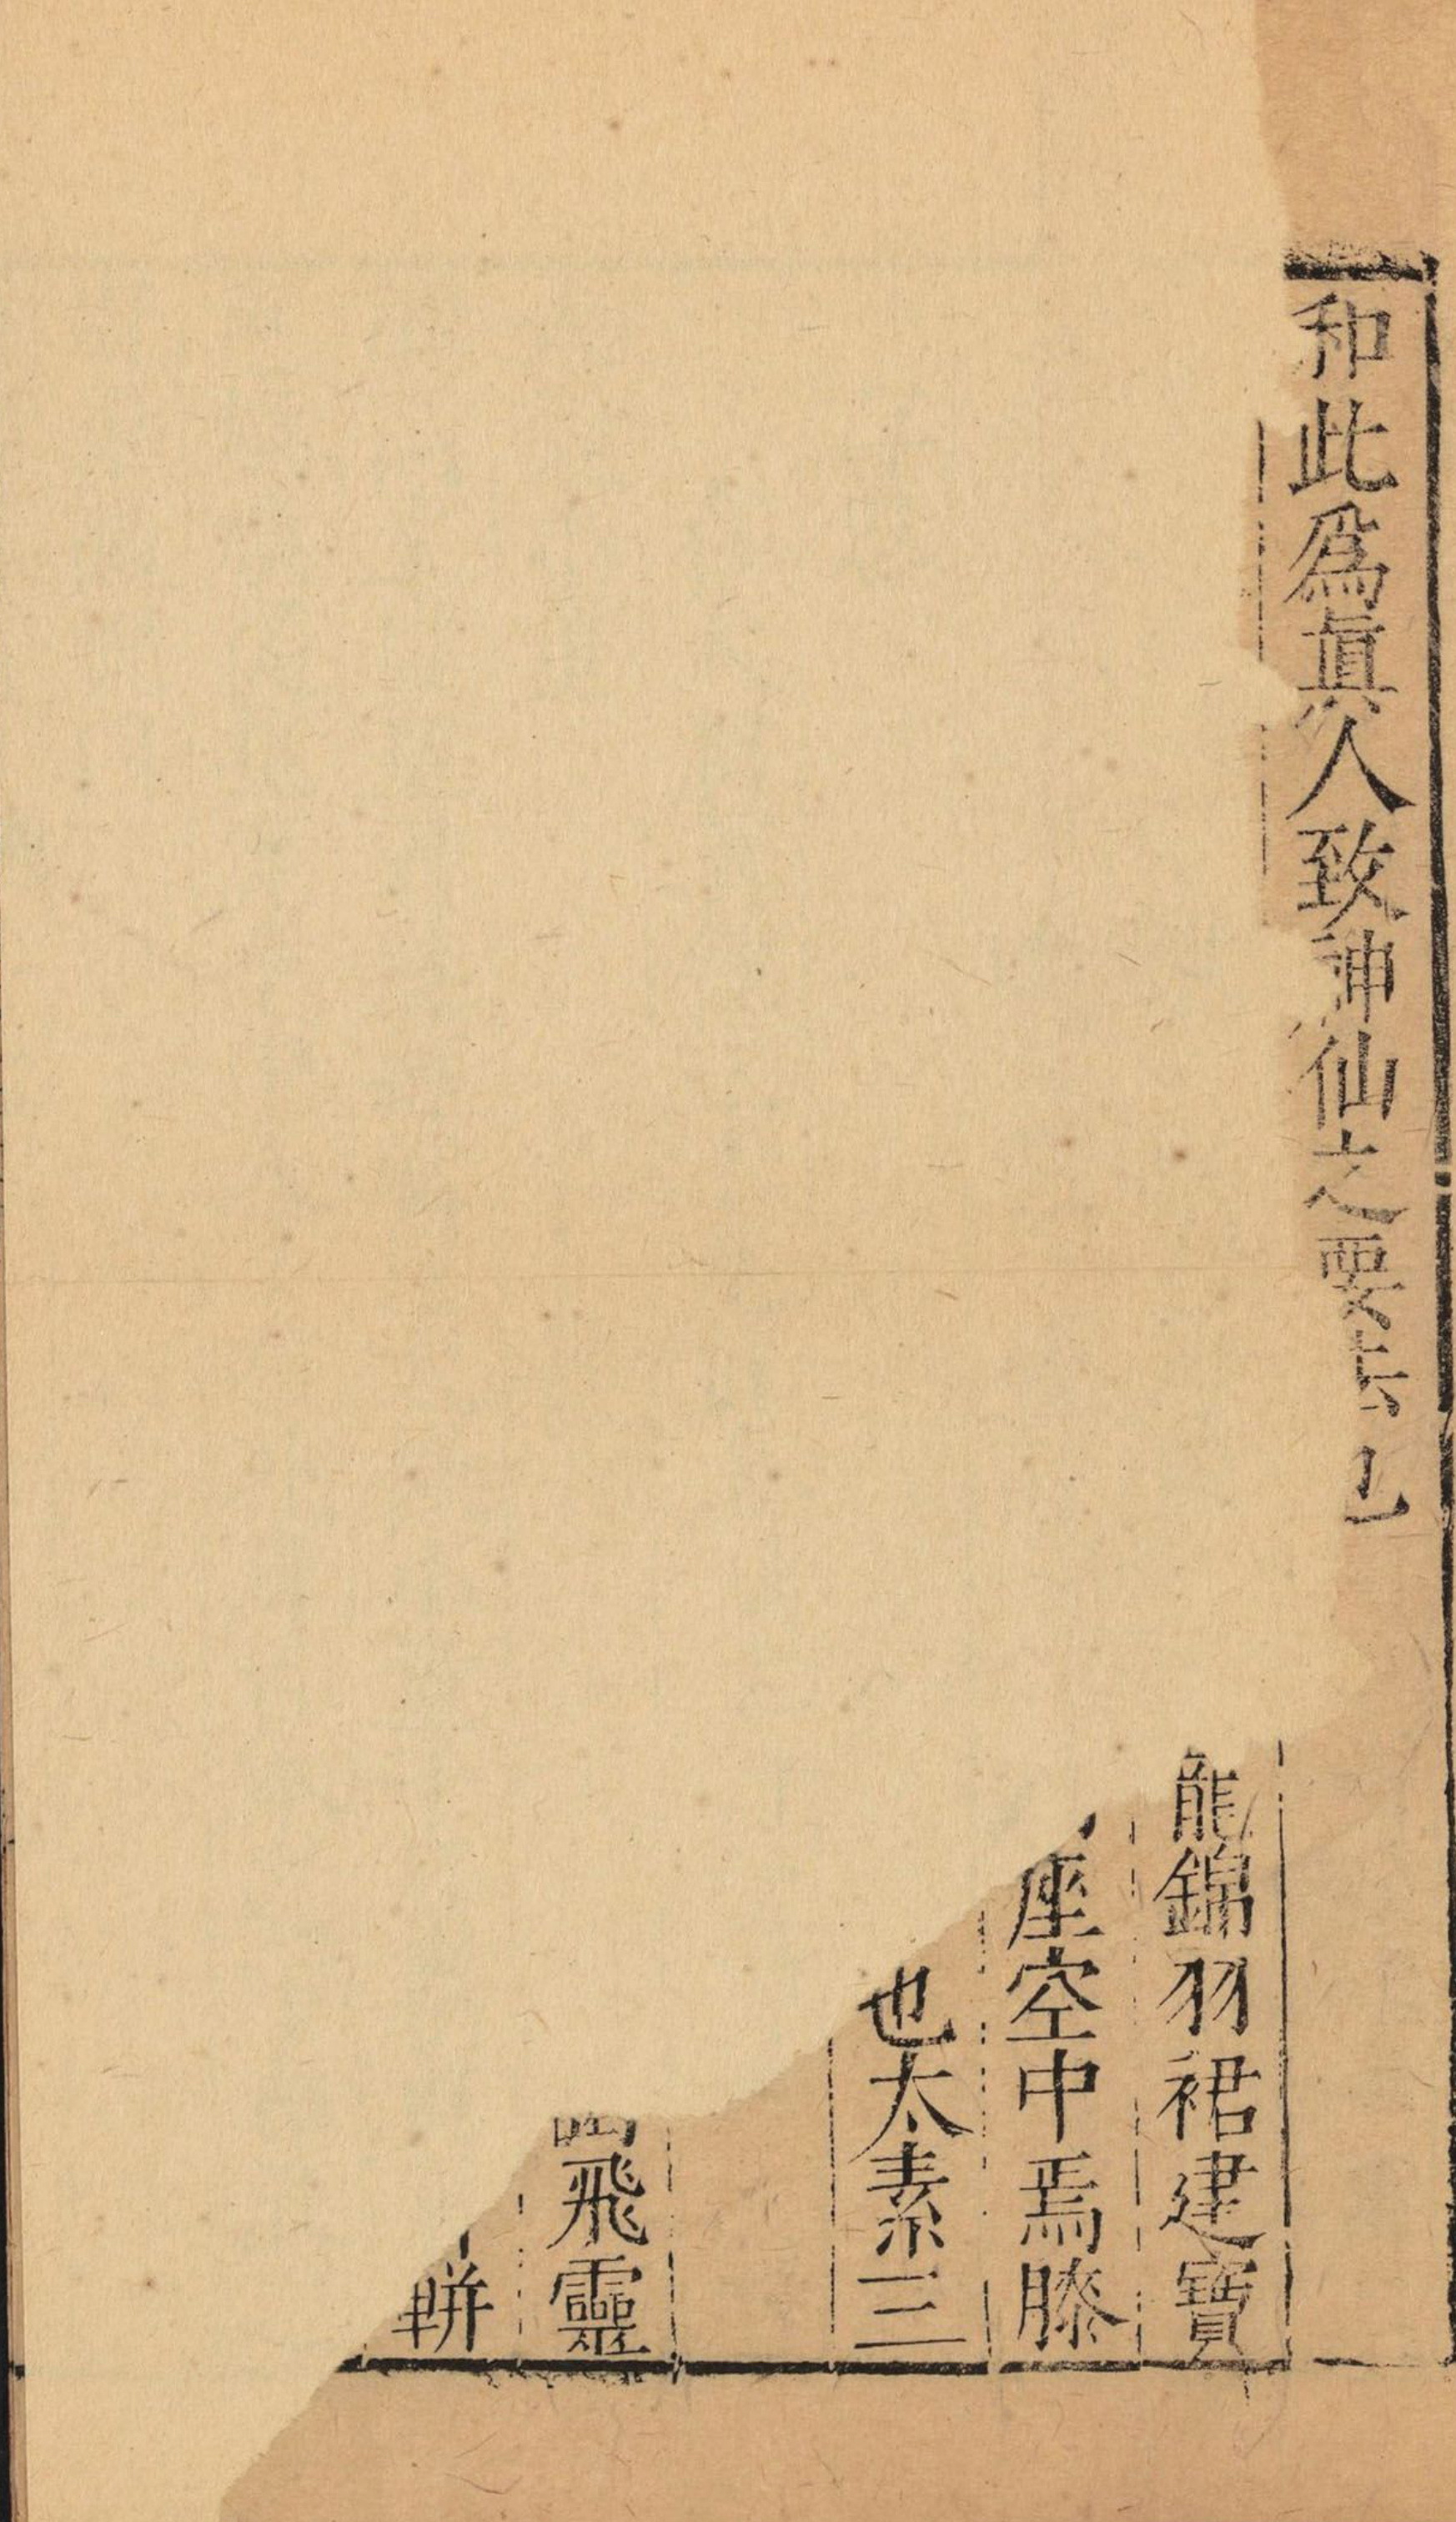 和此爲眞人致神仙之要法也
龍錦羽裙建寶
座空中焉膝
也太素三
飛靈
輧